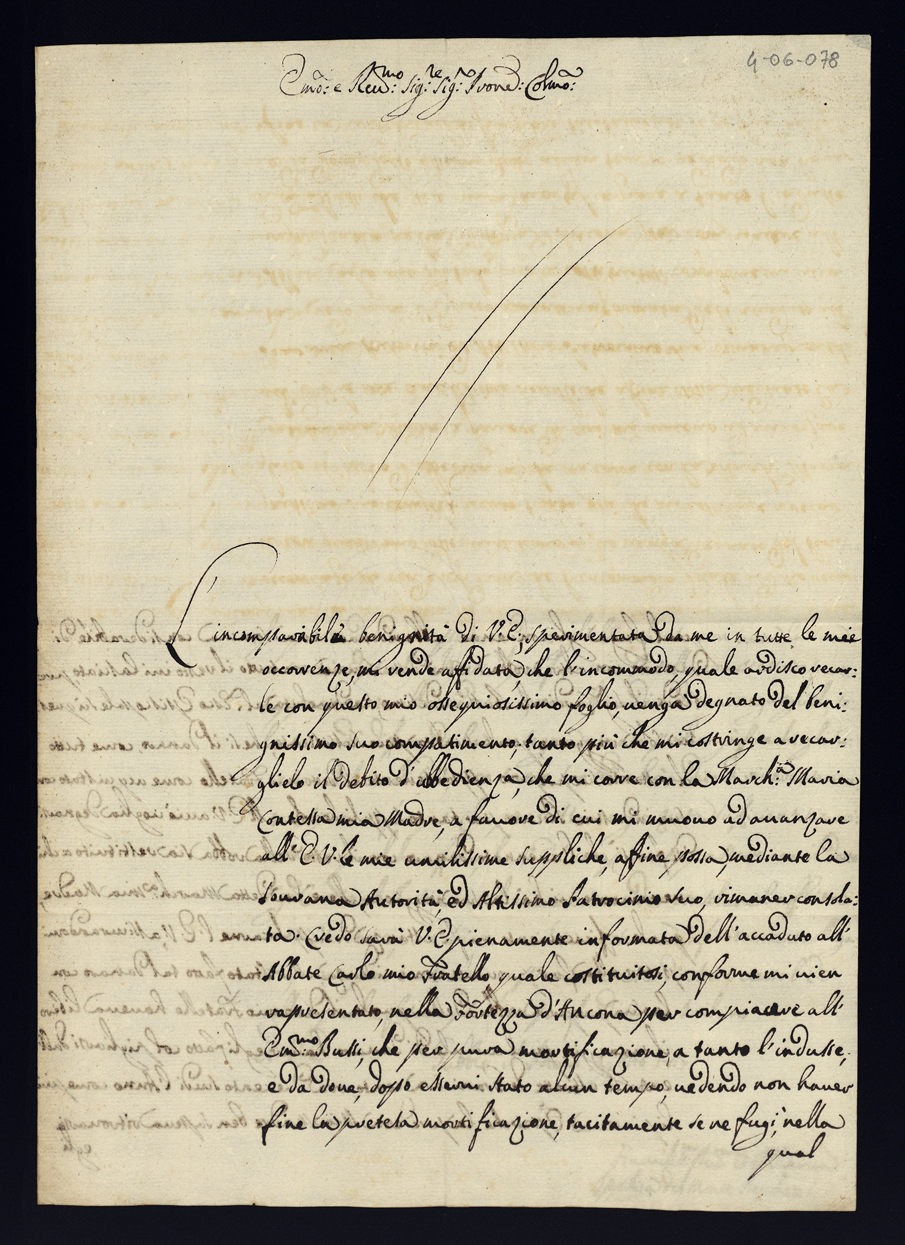 4-06-078
Emo: e Reumo: Sigre Sigr Prone: Colmo:
L'incomparabile benignità di V. E., sperimentata da me in tutte le mie
occorrenze, mi rende affidata, che l'incommodo, quale ardisco recar:
le con questo mio ossequiosissimo foglio, uenga degnato del beni:
gnissimo suo compatimento, tanto più che mi costringe a recar:
glielo il debito d'ubbedienza, che mi corre con la Marcha: Maria
Contessa mia Madre, a fauore di cui mi muouo ad auanzare
all'E. V. le mie umilissime suppliche, affine possa, mediante la
Sourana Autorità, ed Altissimo Patrocinio suo, rimaner consola:
ta. Credo sarà V. E. pienamente informata dell'accaduto all'
Abbate Carlo mio Fratello quale costituitosi, conforme mi uien
rapresentato, nella Fortezza d'Ancona per compiacere all'
Emmo Bussi, che per pura mortificazione, a tanto l'indusse,
e da doue, doppo esserui stato alcun tempo, uedendo non hauer
fine la pretesa mortificazione, tacitamente se ne fugì, nella
qual